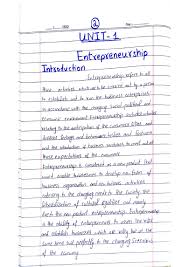 2
UNIT-1
Entrepreneurship
Introduction
Entrepreneurship refers to all
those activities which are to be carried out by a person
to establish and to run the business enterprises
in accordance with the changing social, political and
economic environment. Entrepreneurship includes activities
relating to the anticipation of the consumers likes and
dislikes, feelings and behaviours, tastes and fashions
and the introduction of business ventures to meet out all
these expectations of the consumers.
Entrepreneurship is considered as a new product that
would enable businessmen to develop new form of
business organization and new business activities
catering to the changing needs to the society. The
liberalization of cultural rigidities and mainly
such the new product entrepreneurship. Entrepreneurship
is the ability of entrepreneurs to assess the risks
and establish businesses which are risky but at the
same time suit perfectly to the changing scenarios
of the economy.